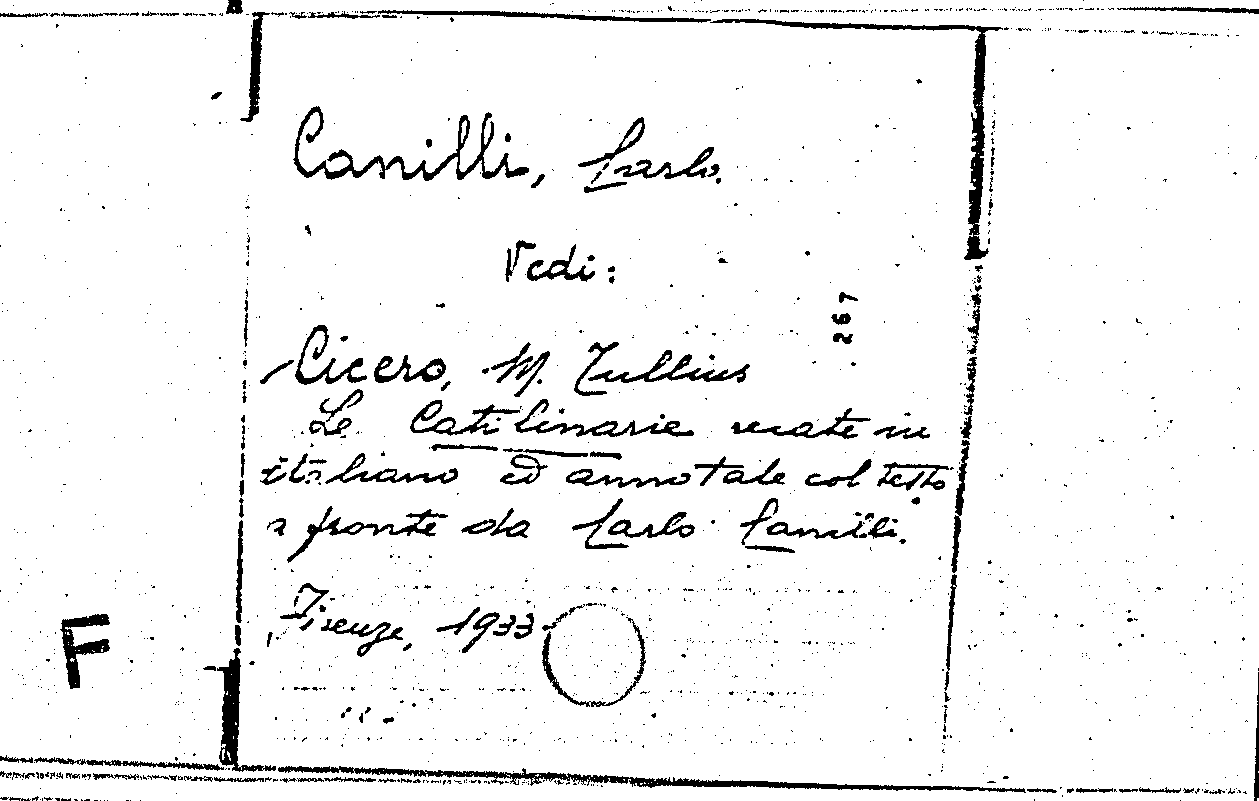 Canilli, Carlo.
Vedi:
267
Cicero, M. Tullius
Le Catilinarie recate in
italiano ed annotate col testo
a fronte da Carlo Canilli.
Firenze, 1933
F